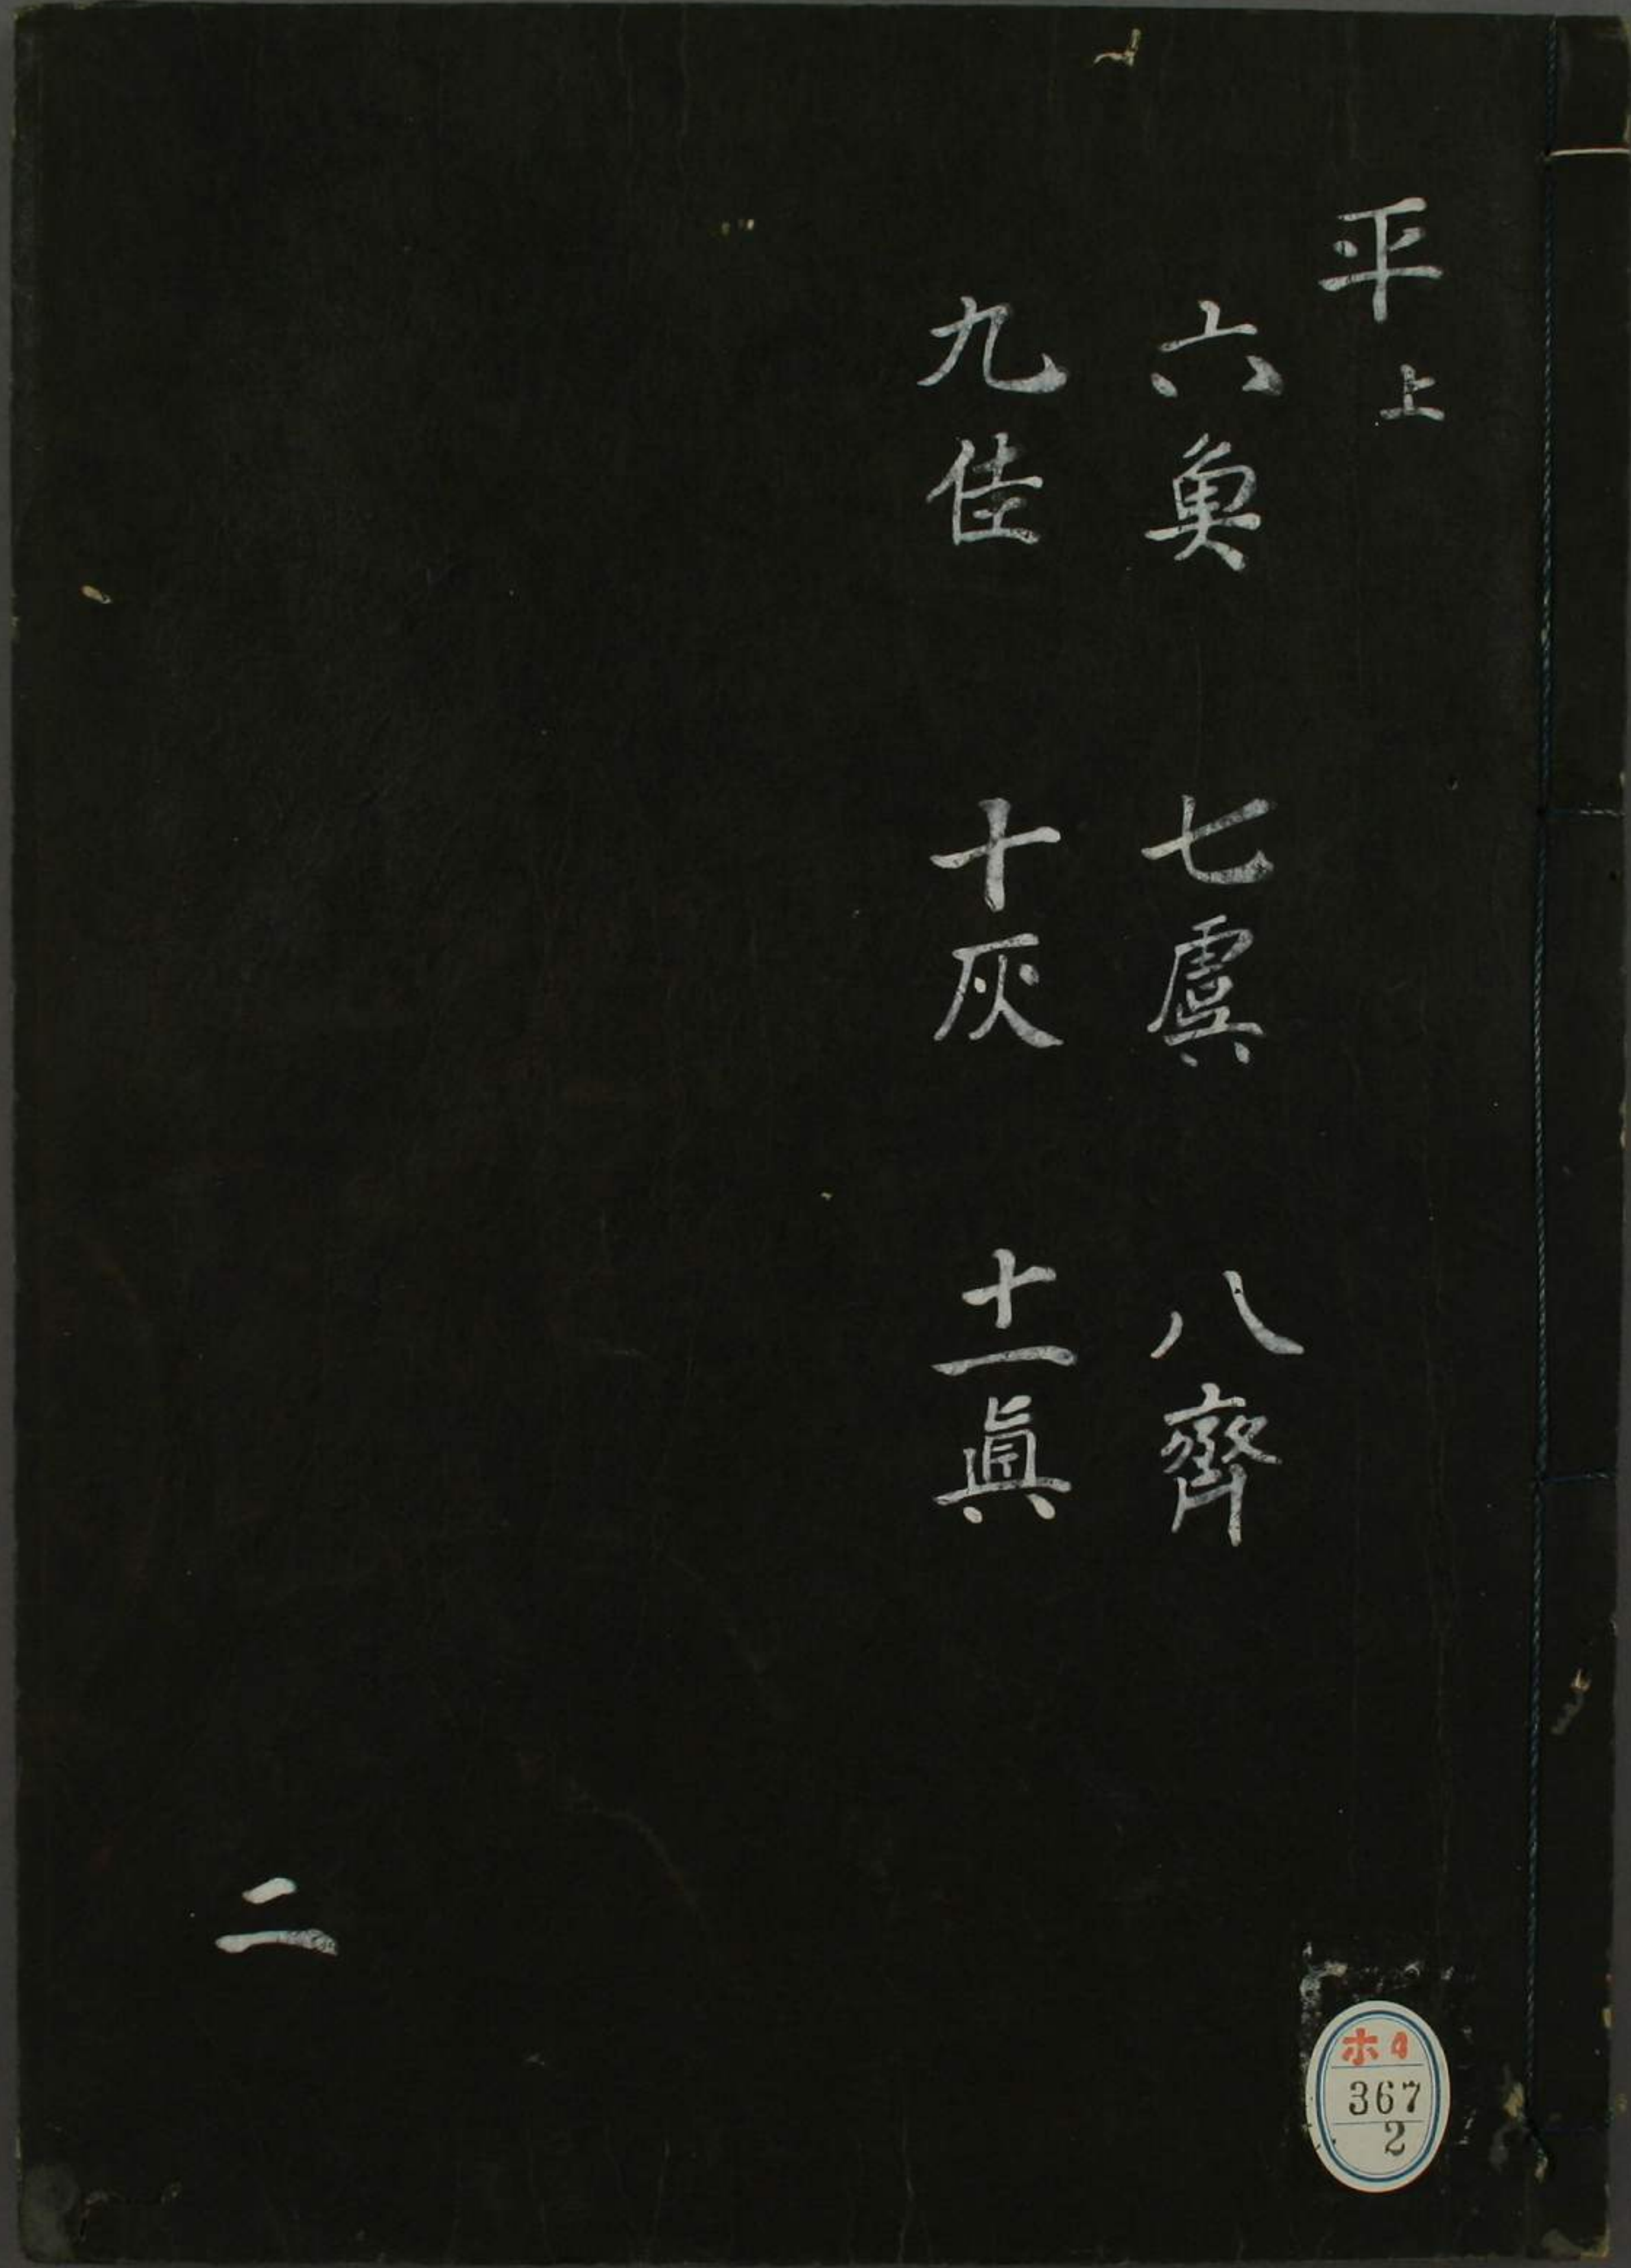 平上
六魚　七虞　八齊
九佳　十灰　十一眞
二
ホ4
367
2